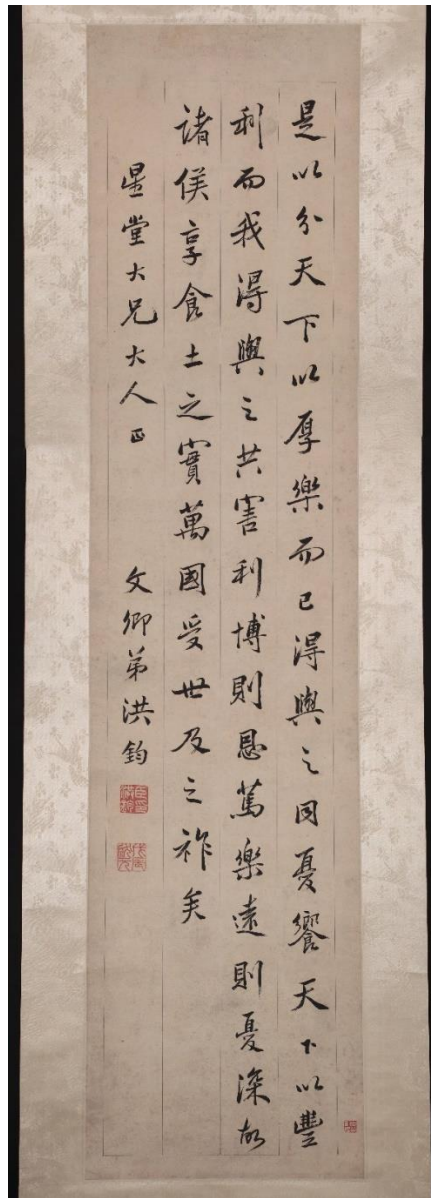 是以分天下以厚樂而已得與之同憂饗天下以豐
利而我得與之共害利博則恩篤樂遠則憂深故
諸侯享食土之實萬國受世及之祚矣
星堂大兄大人正 文卿弟洪鈞